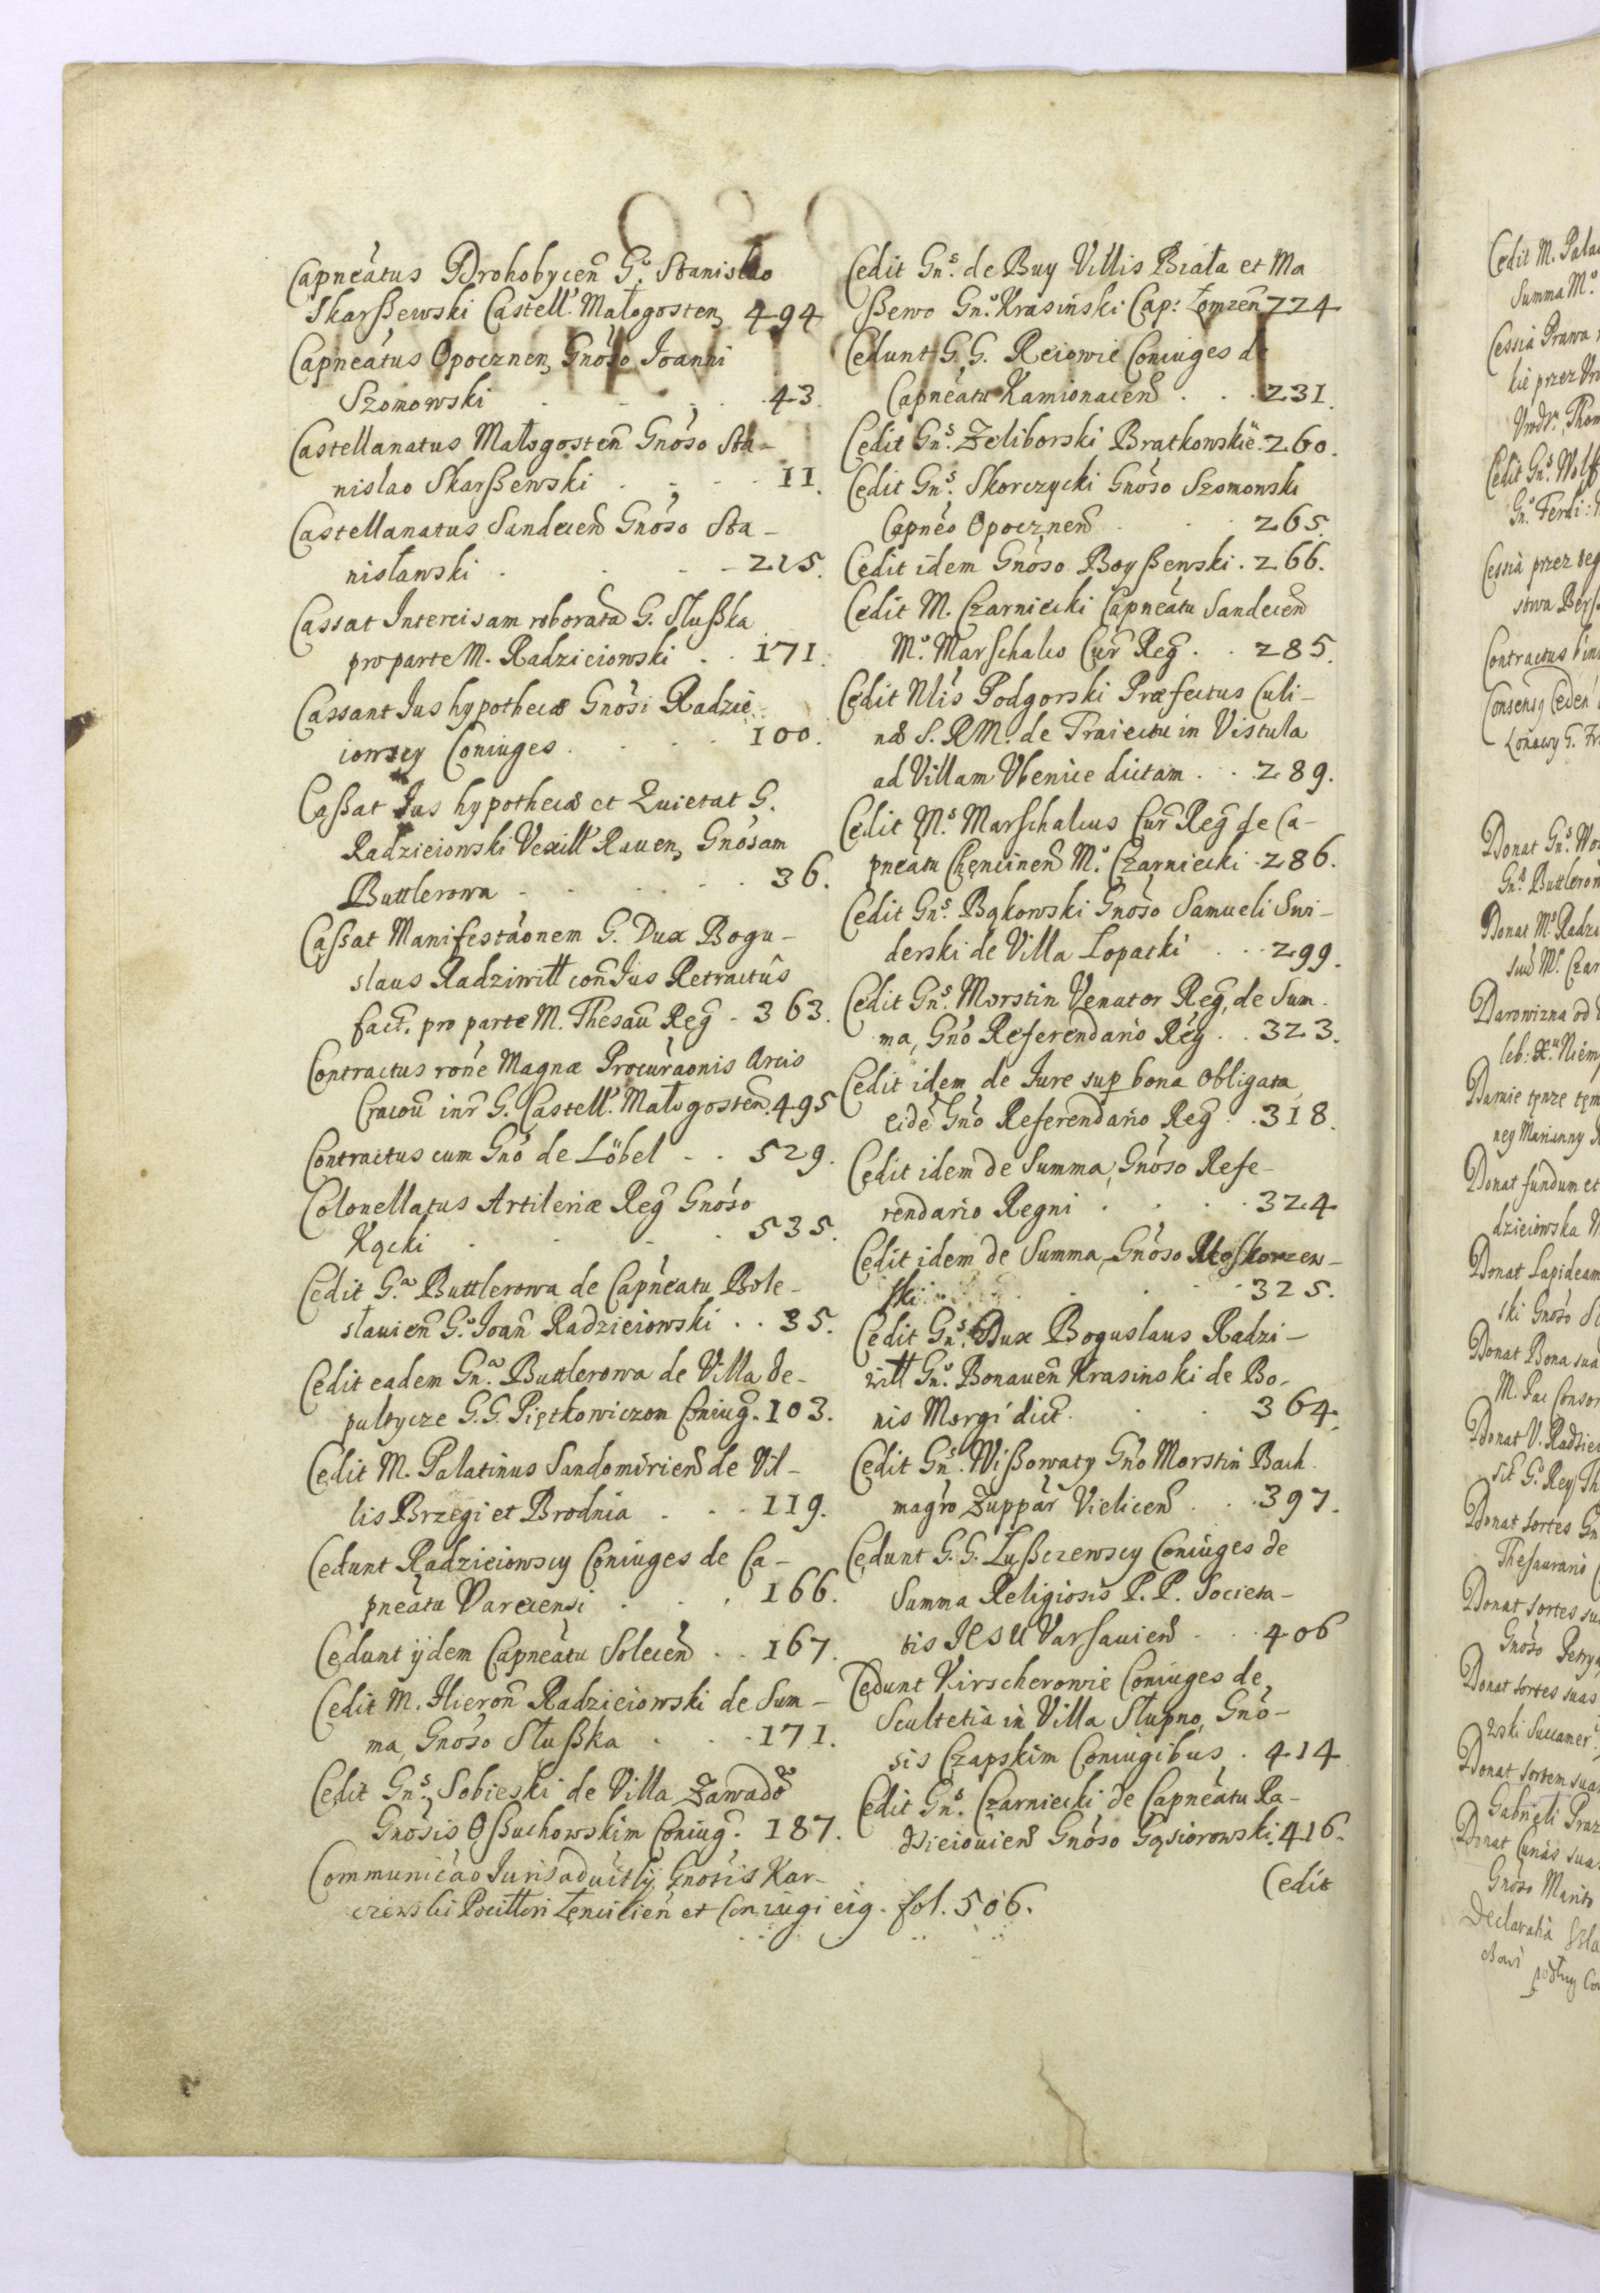 Capneatus Drohobycen̄ G.º Stanislao
Skarßewski Castell. Małogosten, 494
Capneatus Opocznen, Gnōso Ioanni
Szomowski . . . . 43.
Castellanatus Małogosten̄ Gnōso Sta-
nislao Skarßewski . . . . 11.
Castellanatus Sandecen̄ Gnōso Sta-
nisławski . . . . 215.
Cassat Intercisam roboratā G. Słußka
pro parte M. Radzieiowski . . 171.
Cassant Ius hypothecæ Gnōsi Radzie-
iowscy Coniuges . . . . 100.
Caßat Ius hypothecæ et Quietat G.
Radzieiowski Vexill. Rauen, Gnōsam
Buttlerowa . . . . 36.
Caßat Manifestāonem G. Dux Bogu-
slaus Radziwiłł con̄ Ius Retractus
fact. pro parte M. Thesau Reg̃ . 363.
Contractus rōne Magnæ Procurāonis Arcis
Cracou inr̄ G. Castell. Małogosten̄. 495
Contractus cum Gnō de Löbel . . 529.
Colonellatus Artileriæ Reg̃ Gnōso
Kącki . . . . 535.
Cedit G.ª Buttlerowa de Capn̄eatu Bole-
slauien̄ G.º Ioan̄ Radzieiowski . . 35.
Cedit eadem Gn.ª Buttlerowa de Villa de-
pultycze G.G. Piętkowiczom Coniug̃. 103.
Cedit M. Palatinus Sandomirien̄ de Vil-
lis Brzegi et Brodnia . . . 119.
Cedunt Radzieiowscy Coniuges de Ca-
pneatu Varecensi . . . 166.
Cedunt ijdem Capneatu Solecen̄ . . 167.
Cedit M. Hieron̄ Radzieiowski de Sum-
ma, Gnōso Słußka . . . 171.
Cedit Gn.s Sobieski de Villa Zawady
Gnōsis Oßuchowskim Coniug̃. 187.
Communicāo Iuris aduitlỹ Gnōsis Kar-
czewski Pocillori Łencicien̄ et Coniugi eig. fol. 506.
Cedit Gn.s de Buy Villis Biała et Ma
ßewo Gn.º Krasiński Cap: Łomzen̄ 224
Cedunt G.G. Reiowie Coniuges de
Capneatu Kamionacen̄ . . . 231.
Cedit Gn.s Zeliborski Bratkowskie . 260.
Cedit Gn.s Skorczycki Gnōso Szomowski
Capneo Opocznen̄ . . . 265.
Cedit idem Gnōso Boyßewski . 266.
Cedit M. Czarniecki Capneatu Sandecen̄
M.º Marschalco Cur̄ Reg̃ . . 285.
Cedit Nlis Podgorski Præfectus Culi-
næ S.RM. de Traiectu in Vistula
ad Villam Vbenice dictam . . 289.
Cedit M.s Marschalcus Cur̄ Reg̃ de Ca-
pneatu Chęncinen̄ M.º Czarniecki . 286.
Cedit Gn.s Bąkowski Gnōso Samueli Swi-
derski de Villa Lopatki . . 299.
Cedit Gn.s Morstin Venator Reg̃, de Sum-
ma, Gnō Referendario Reg̃ . . 323.
Cedit idem de Iure sup bona obligata
eidē Gnō Referendario Reg̃ . . 318.
Cedit idem de Summa, Gnōso Refe-
rendario Regni . . . . 324
Cedit idem de Summa, Gnōso Moskorzew-
ski . . . . 325.
Cedit Gn.s Dux Boguslaus Radzi-
wiłł Gn.º Bonauen̄ Krasinski de Bo-
nis Morgi dict. . . . 364.
Cedit Gn.s Wißowaty Gnō Morstin Bach-
magro Zuppar̄ Vielicen̄ . . . 397.
Cedunt G.G. Łußczewscy Coniuges de
Summa Religiosis P.P. Societa-
tis IESU Varsauien̄ . . . 406
Cedunt Kirscherowie Coniuges de,
Scultetia in Villa Słupno, Gnō-
sis Czapskim Coniugibus . 414
Cedit Gn.s Czarniecki de Capneatu Ra-
dzieiouien̄ Gnōso Gąsiorowski. 416.
Cedit
Cedit M. Pala
Summa M.º
Cessia Prawa
kie przez Vro
Cedit Gn.s Wolff
Gn.º Ferdi:
Cessia przez
stwa
Contractus
Consensq Ceden
Donat Gn.s
Gn.ª Buttlerow
Donat M.s Radzi
M.º Czar
Darowizna od
Donat fundum et
dzieiowska
Donat Lapideam
ski Gnōso
Donat Bona sua
M. Pac Consor
Donat V. Radziei
G.º Rey
Donat sortes Gn
Thesaurario
Donat sortes su
Gnōso
Donat sortes suas
Donat sortem sua
Gabrieli
sua
Gnōso Marito
Declaratia